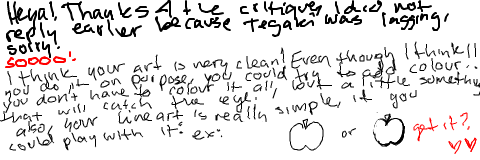 Heya! Thanks 4 the critique, I did not
reply earlier because tegaki was lagging,
sorry!
SOOOO!
I think your art is very clean! Even though I think
you do it on purpose, you could try to add colour..
you don't have to colour it all, but a little something
that will catch the eye.
also, your lineart is really simple, if you
could play with it: ex: or got it?